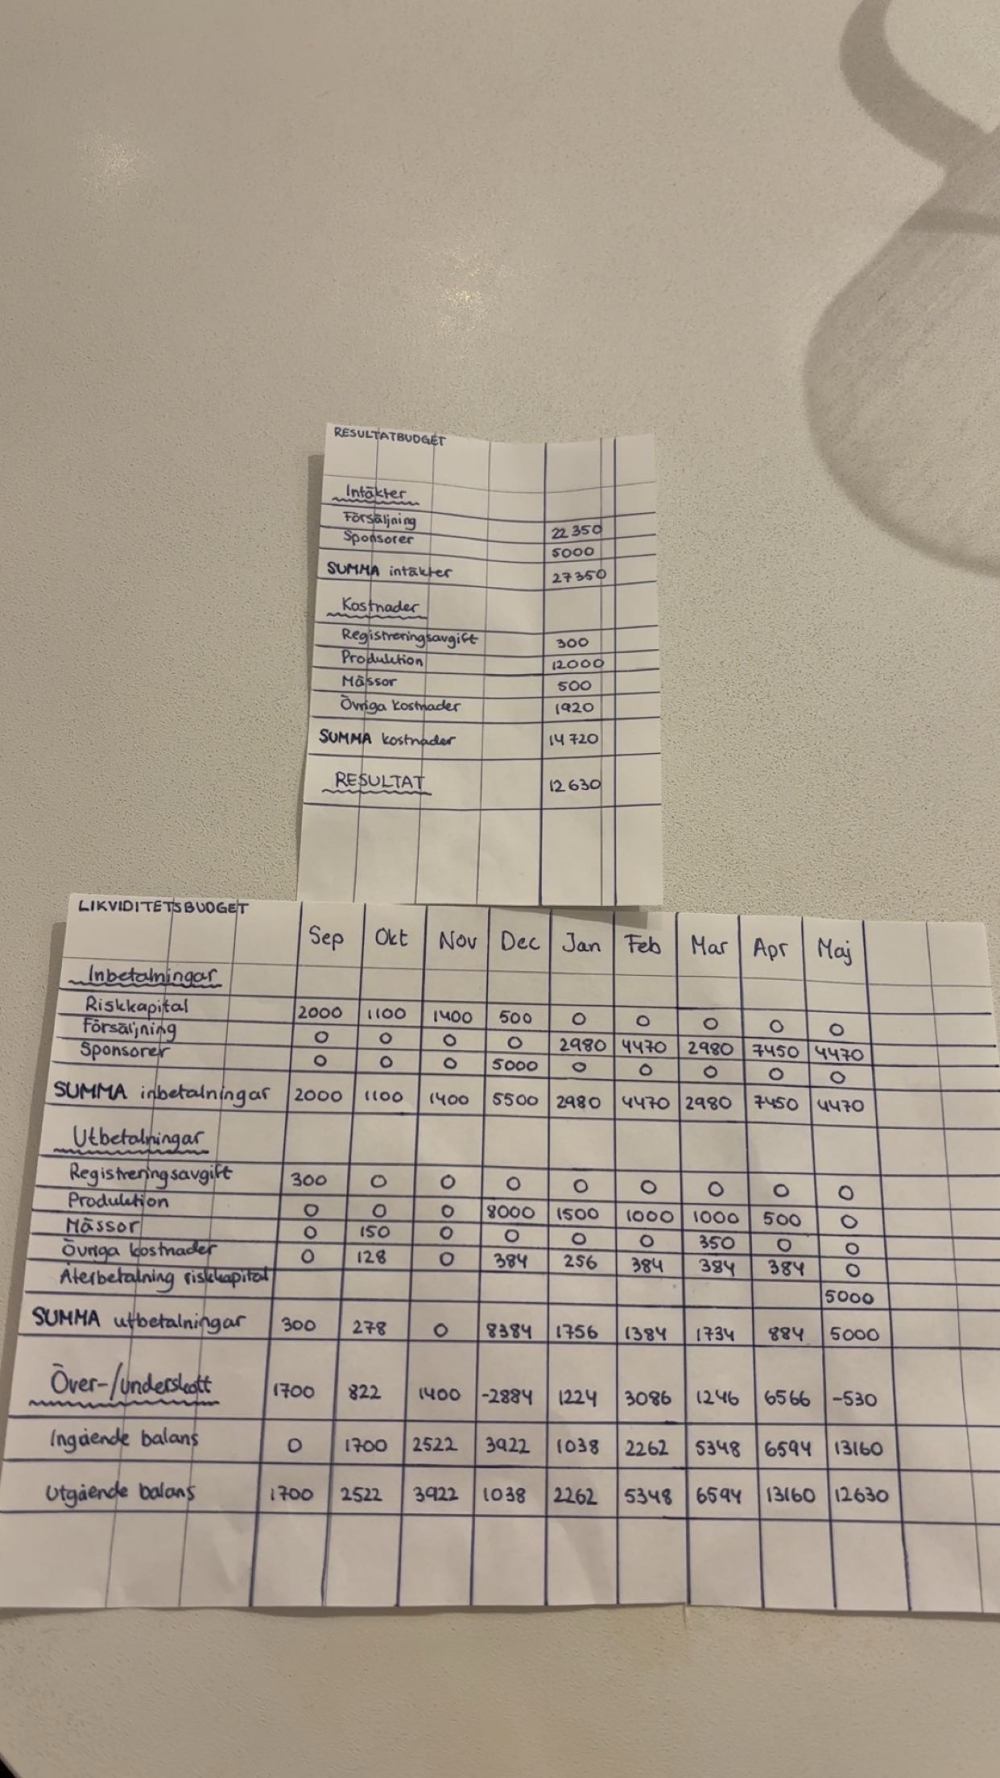 RESULTATBUDGET
Intäkter
Försäljning 22 350
Sponsorer 5000
SUMMA intäkter 27350
Kostnader
Registreringsavgift 300
Produktion 12000
Mässor 500
Övriga kostnader 1920
SUMMA kostnader 14 720
RESULTAT 12 630
LIKVIDITETSBUDGET
Sep Okt Nov Dec Jan Feb Mar Apr Maj
Inbetalningar
Riskkapital 2000 1100 1400 500 0 0 0 0 0
Försäljning 0 0 0 0 2980 4470 2980 7450 4470
Sponsorer 0 0 0 5000 0 0 0 0 0
SUMMA inbetalningar 2000 1100 1400 5500 2980 4470 2980 7450 4470
Utbetalningar
Registreringsavgift 300 0 0 0 0 0 0 0 0
Produktion 0 0 0 8000 1500 1000 1000 500 0
Mässor 0 150 0 0 0 0 350 0 0
Övriga kostnader 0 128 0 384 256 384 384 384 0
Återbetalning riskkapital 5000
SUMMA utbetalningar 300 278 0 8384 1756 1384 1734 884 5000
Över-/underskott 1700 822 1400 -2884 1224 3086 1246 6566 -530
Ingående balans 0 1700 2522 3922 1038 2262 5348 6594 13160
Utgående balans 1700 2522 3922 1038 2262 5348 6594 13160 12630